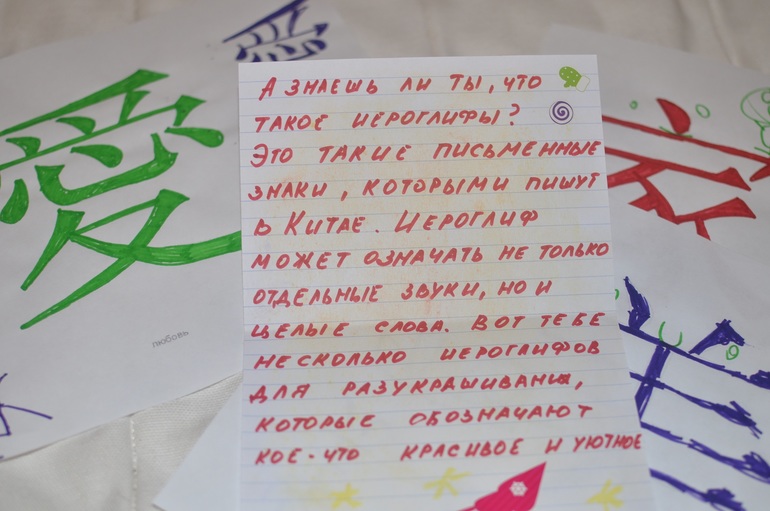 愛
любовь
А ЗНАЕШЬ ЛИ ТЫ, ЧТО
ТАКОЕ ИЕРОГЛИФЫ?
ЭТО ТАКИЕ ПИСЬМЕННЫЕ
ЗНАКИ, КОТОРЫМИ ПИШУТ
В КИТАЕ. ИЕРОГЛИФ
МОЖЕТ ОЗНАЧАТЬ НЕ ТОЛЬКО
ОТДЕЛЬНЫЕ ЗВУКИ, НО И
ЦЕЛЫЕ СЛОВА. ВОТ ТЕБЕ
НЕСКОЛЬКО ИЕРОГЛИФОВ
ДЛЯ РАЗУКРАШИВАНИЯ,
КОТОРЫЕ ОБОЗНАЧАЮТ
КОЕ-ЧТО КРАСИВОЕ И УЮТНОЕ